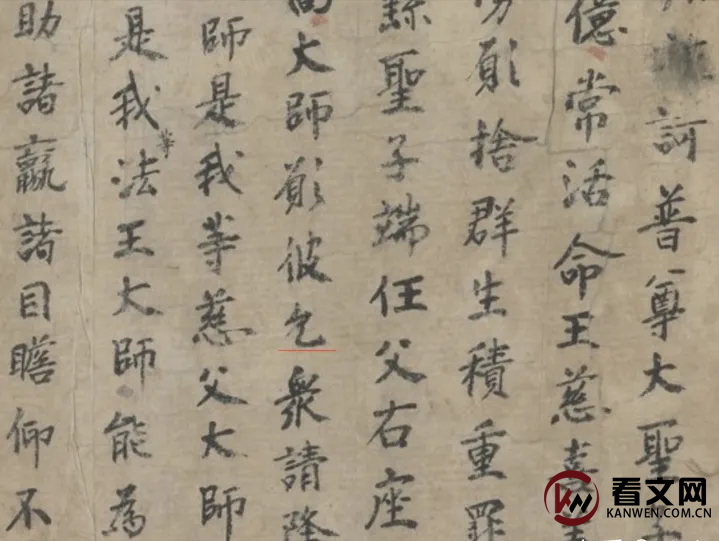 訶普尊大聖
億常活命王慈喜
勞願捨群生積重罪
繇聖子端任父右座
高大師願彼乞衆請降
師是我等慈父大師
是我法王大師能為
助諸羸諸目瞻仰不
看文网
KANWEN.COM.CN